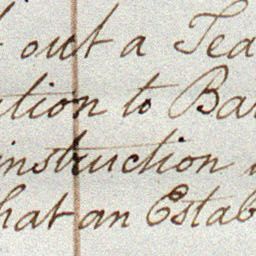 out a Tea
tion to Bar
instruction
hat an Estab